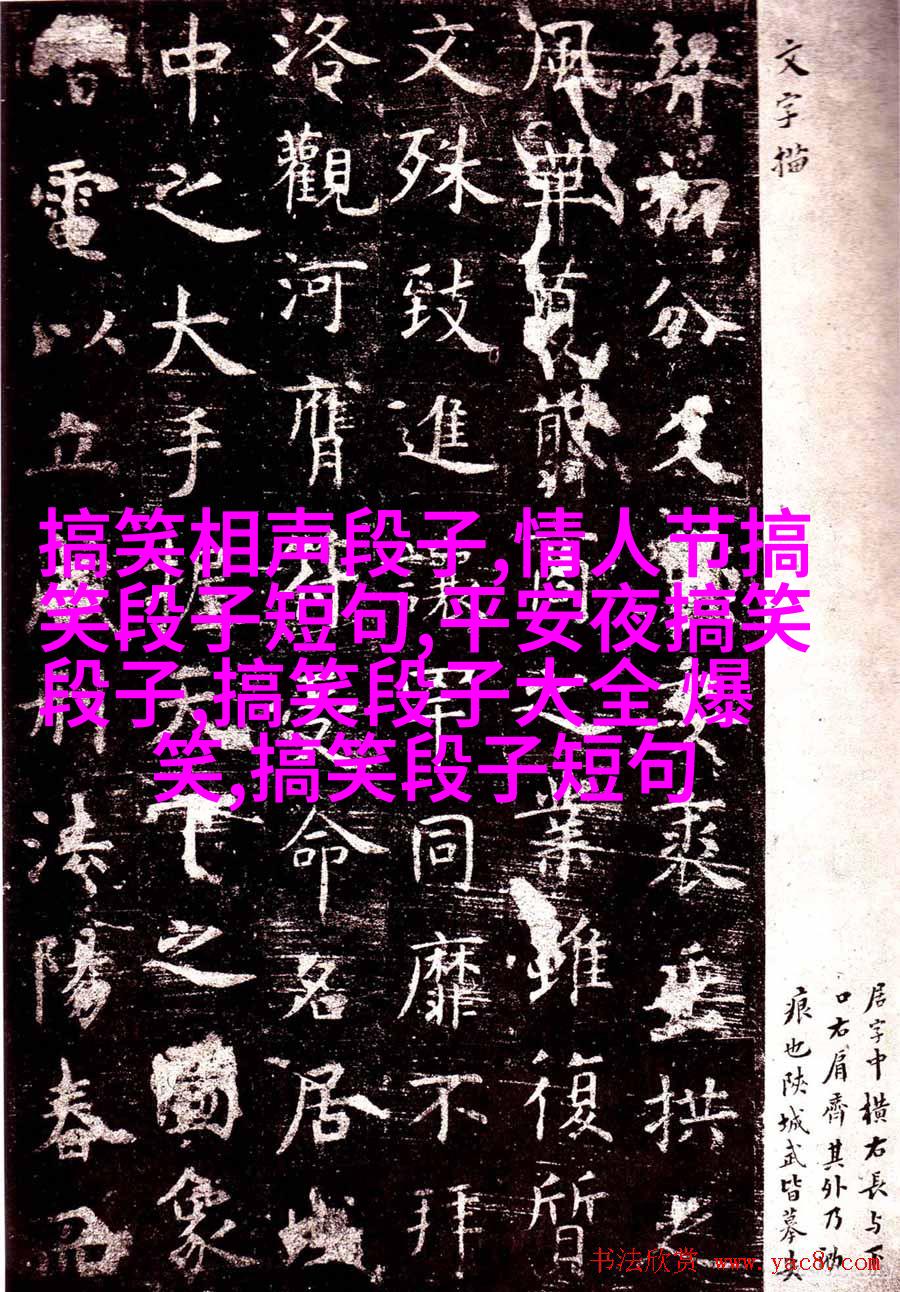 文字描
分
裘垂拱之
風華
業雖復質
文殊致進讓罕同靡不拜
洛觀河膺符受命名居域
中之大手握天下之圖象
電以立威刑法陽春而
居字中横右長与下
口右肩齊其外乃泐
痕也陕城武皆摹失
搞笑相声段子,情人节搞
笑段子短句,平安夜搞笑
段子,搞笑段子大全 爆
笑,搞笑段子短句
书法欣赏 www.yac8.com